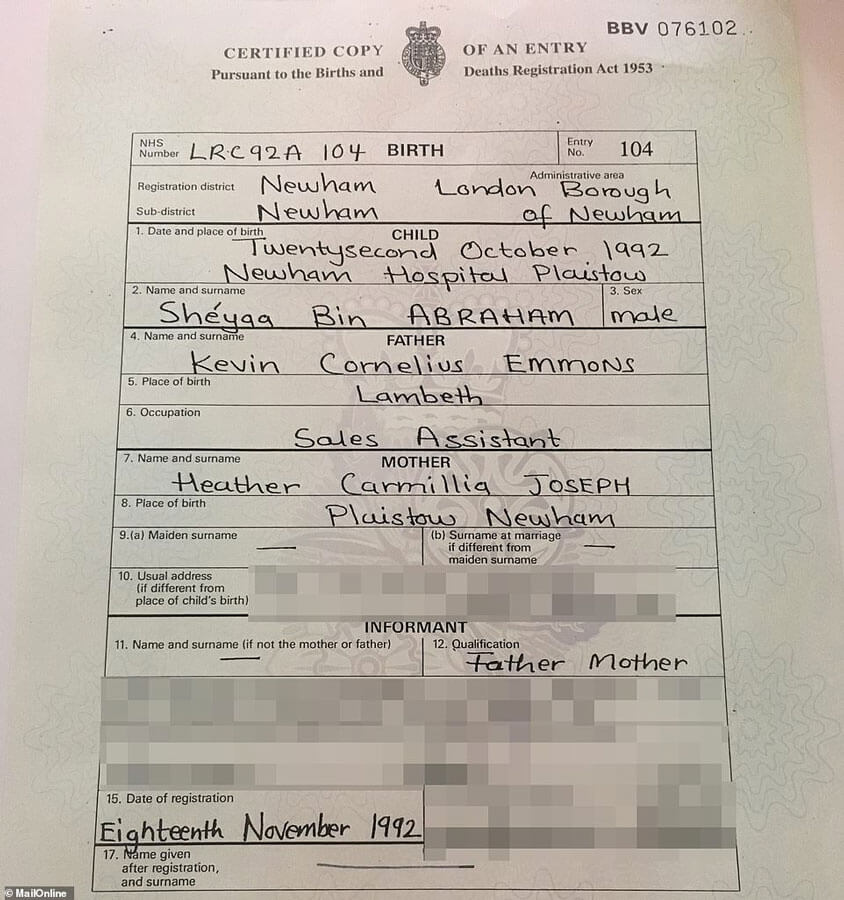 BBV 076102
CERTIFIED COPY OF AN ENTRY
Pursuant to the Births and Deaths Registration Act 1953
NHS Number LRC92A 104 BIRTH Entry No. 104
Registration district Newham Administrative area London Borough
Sub-district Newham of Newham
1. Date and place of birth CHILD
Twentysecond October 1992
Newham Hospital Plaistow
2. Name and surname 3. Sex
Shéyaa Bin ABRAHAM male
4. Name and surname FATHER
Kevin Cornelius EMMONS
5. Place of birth
Lambeth
6. Occupation
Sales Assistant
7. Name and surname MOTHER
Heather Carmillia JOSEPH
8. Place of birth
Plaistow Newham
9.(a) Maiden surname — (b) Surname at marriage
if different from —
maiden surname
10. Usual address
(if different from
place of child's birth)
INFORMANT
11. Name and surname (if not the mother or father) 12. Qualification
— Father Mother
15. Date of registration
Eighteenth November 1992
17. Name given
after registration, —
and surname
© MailOnline